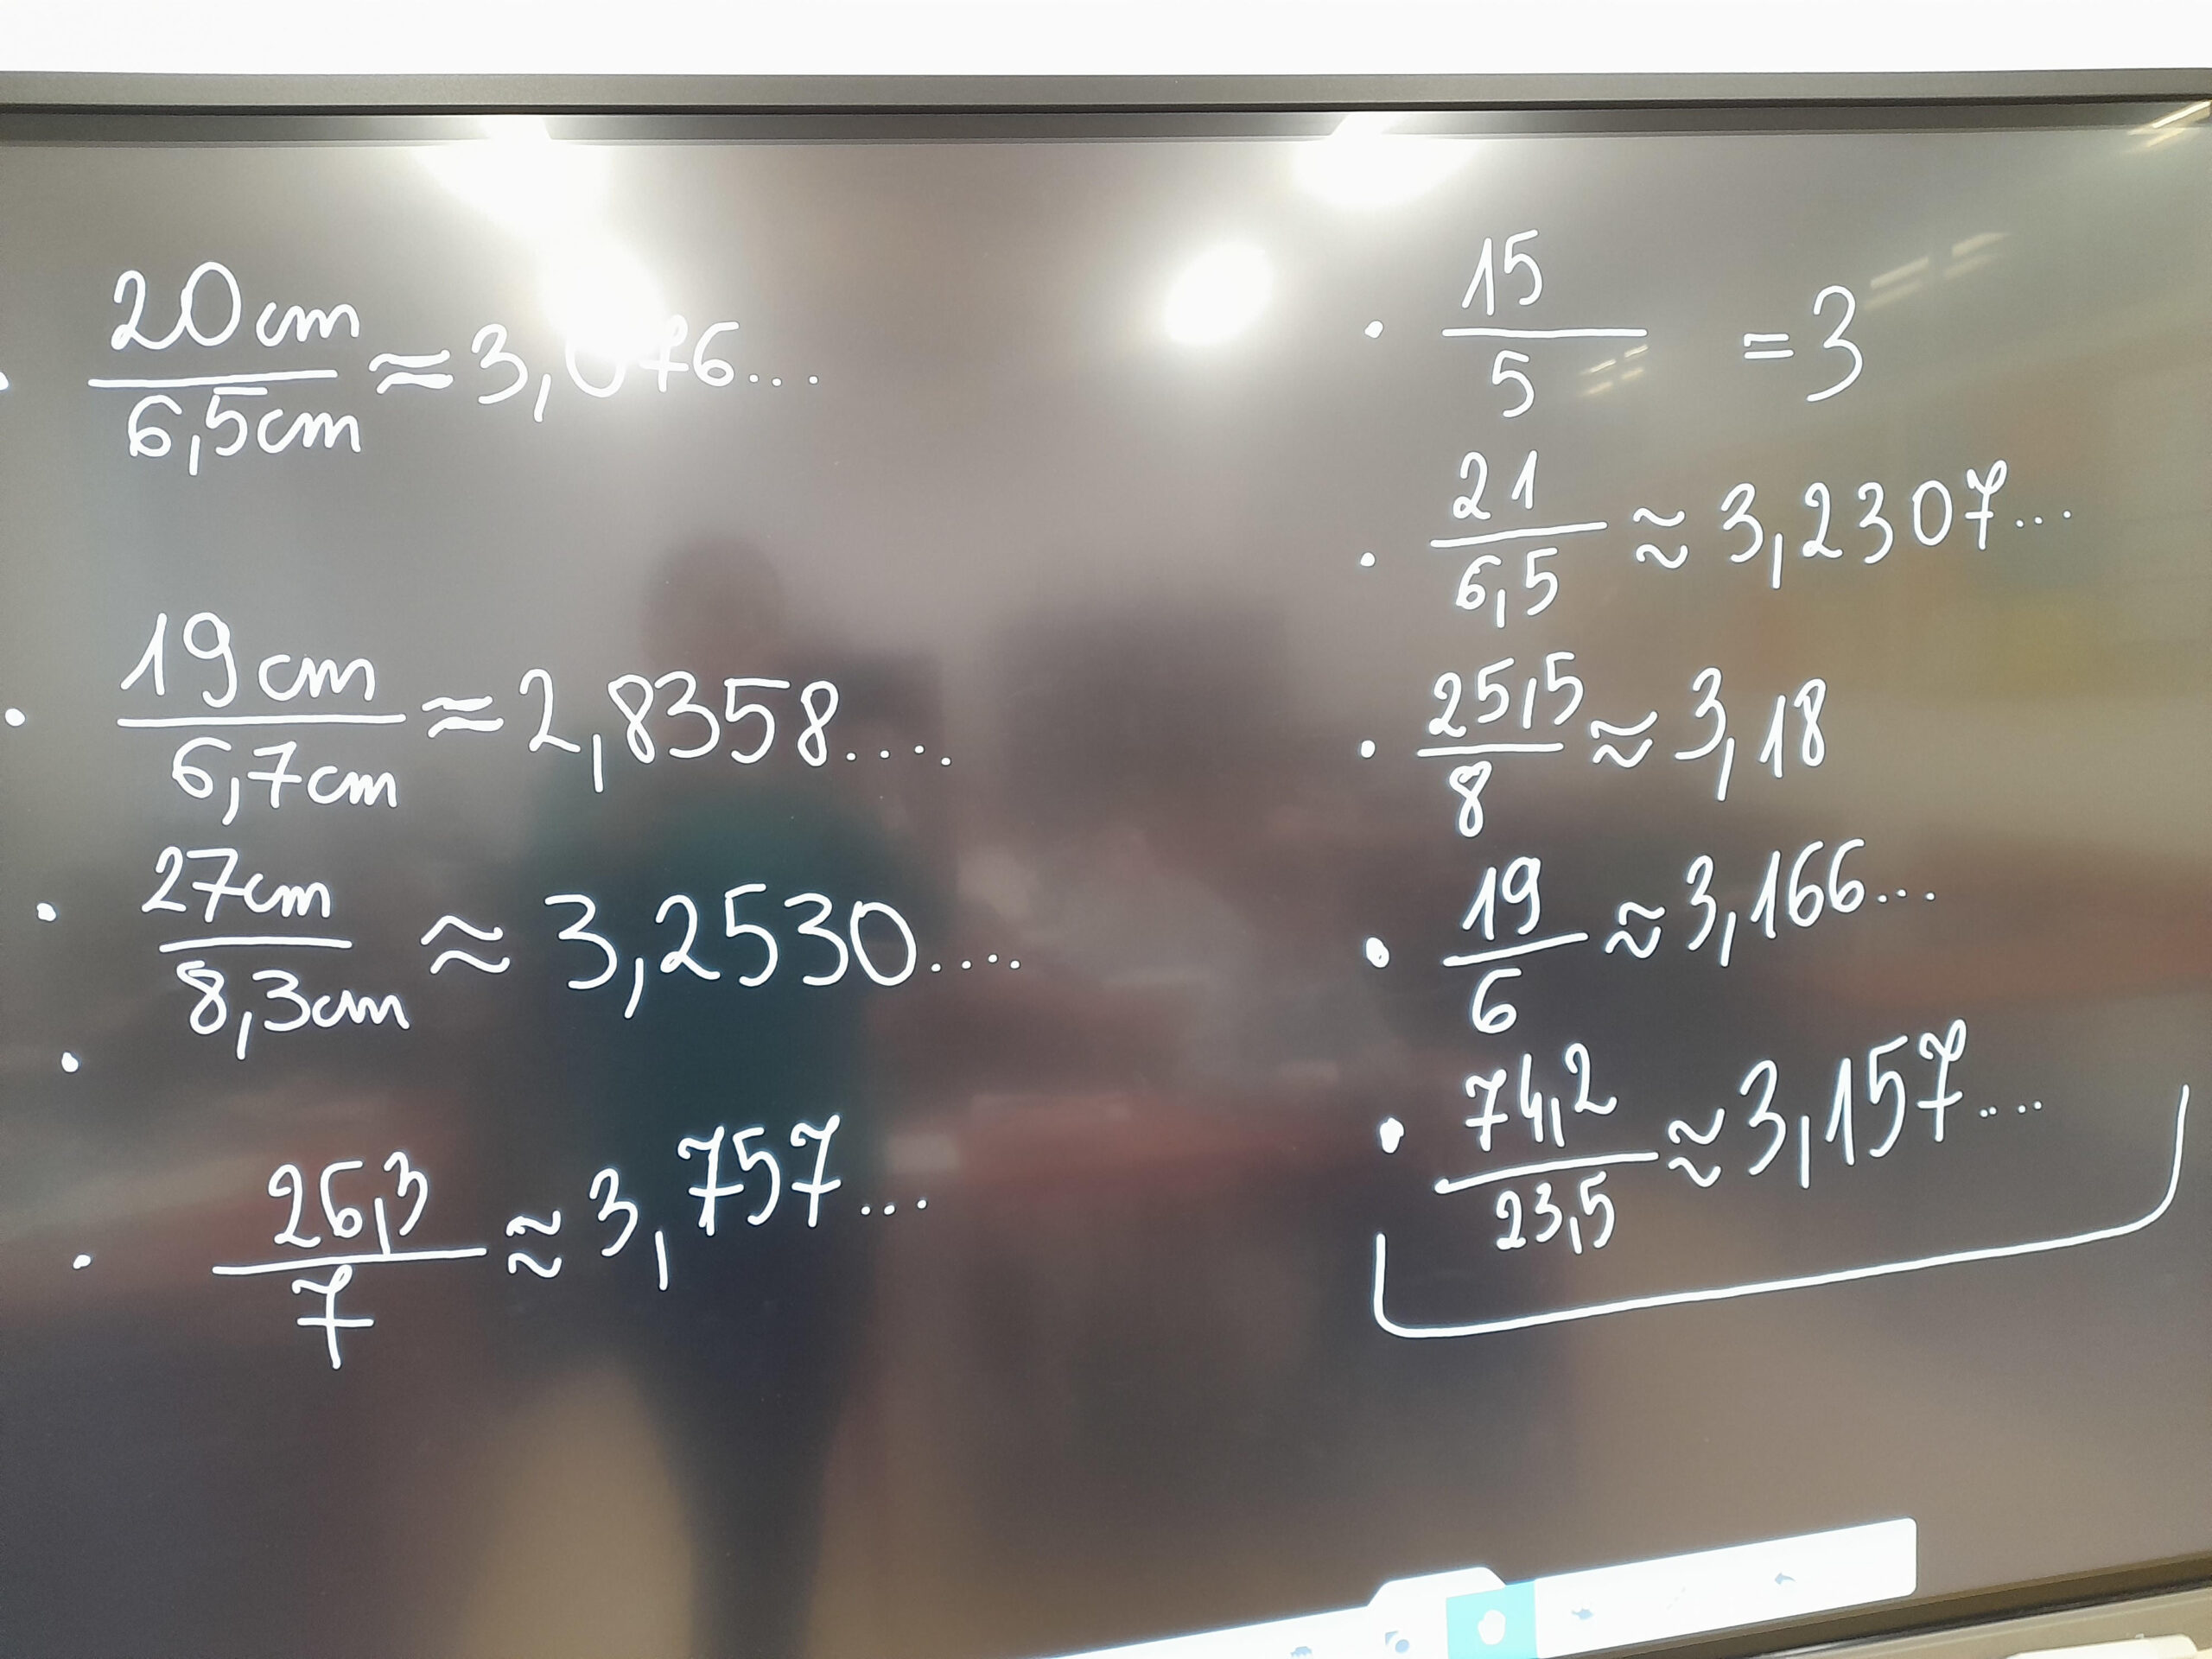 • 20cm / 6,5cm ≈ 3,076...
• 19cm / 6,7cm ≈ 2,8358....
• 27cm / 8,3cm ≈ 3,2530....
•
• 26,3 / 7 ≈ 3,757...
• 15 / 5 = 3
• 21 / 6,5 ≈ 3,2307...
• 25,5 / 8 ≈ 3,18
• 19 / 6 ≈ 3,166...
• 74,2 / 23,5 ≈ 3,157....